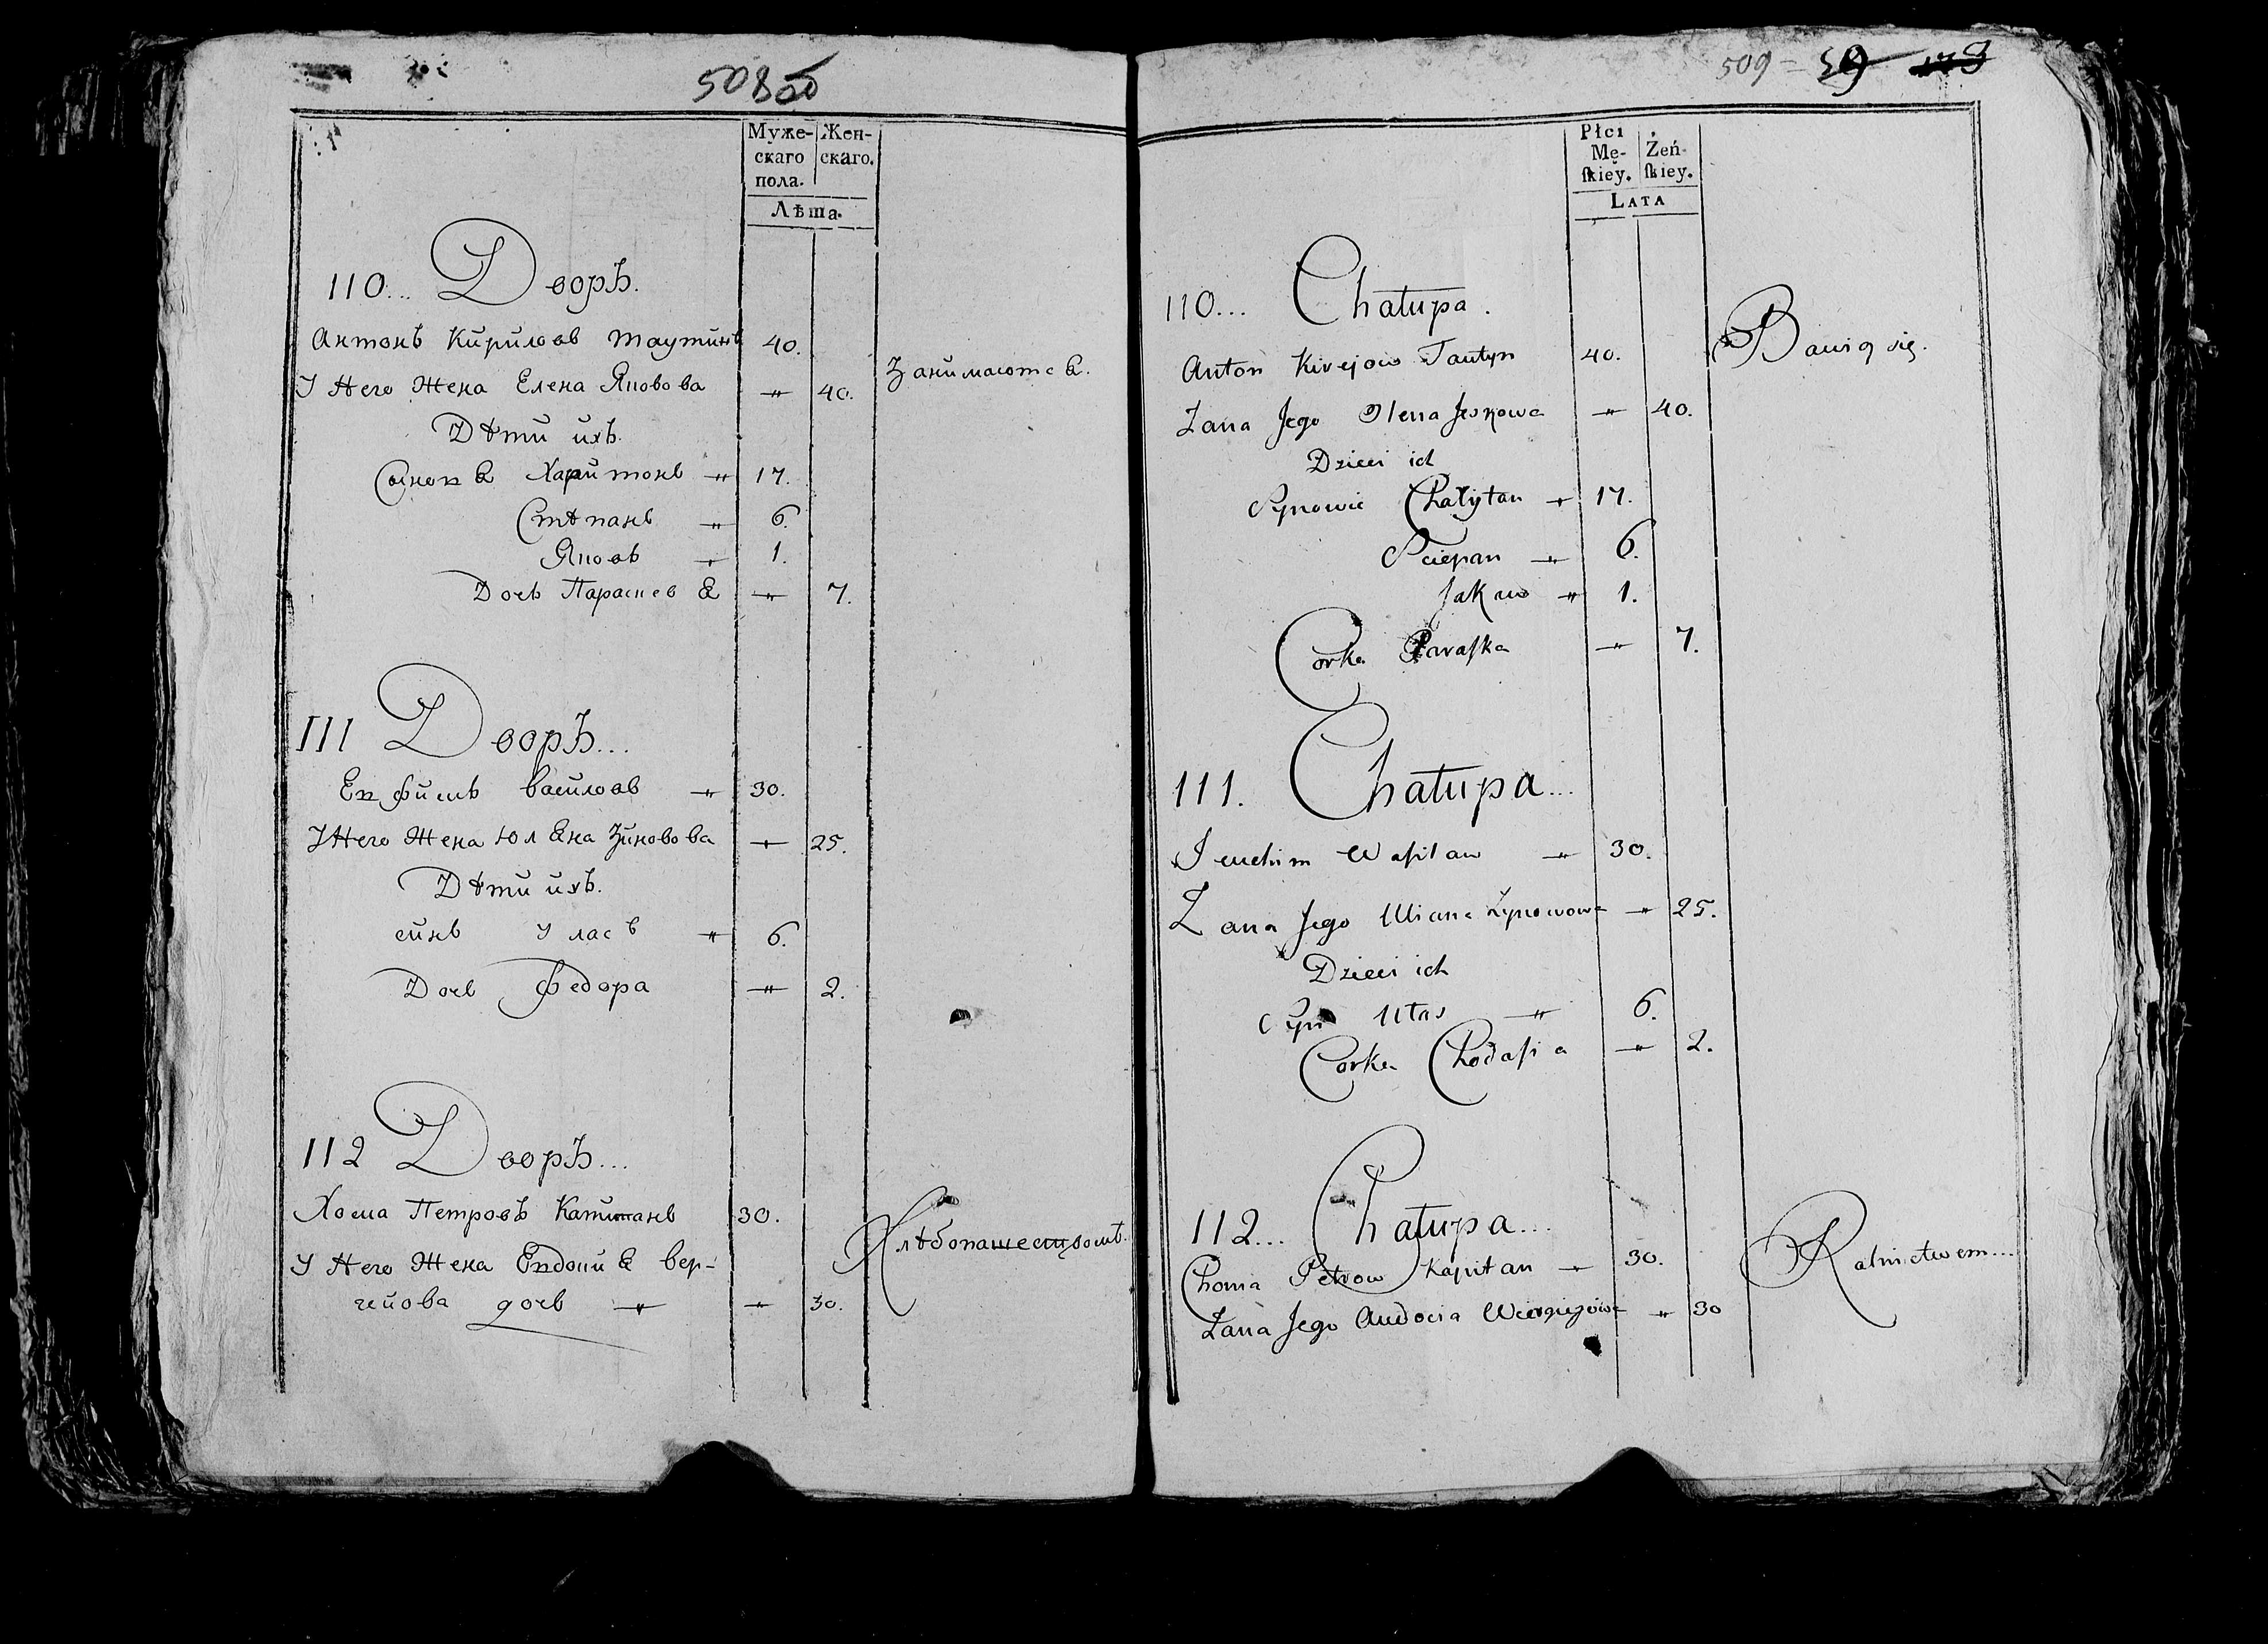 508
Муже-
скаго
пола.
Жен-
скаго.
Лѣта.
110... Дворъ.
Антонъ Кирилов Таутинъ 40.
У Него Жена Елена Яковова 40.
Дѣти ихъ.
Харитонъ 17.
Стѣпанъ 6.
Яковъ 1.
Дочь Параскевѣ 7.
Занимаютсѣ.
111 Дворъ...
Евфимъ Василовъ 30.
У Него Жена Юлѣна Зиновова 25.
Дѣти ихъ.
синъ Уласъ 6.
Дочь Федора 2.
112 Дворъ...
Хома Петровъ Капитанъ 30.
У Него Жена Евдокиѣ Вер-
гейова дочь 30.
Хлѣбопашествомъ.
509
Płci
Mę-
ſkiey.
Żeń-
ſkiey.
LATA
110... Chałupa.
Anton Kirejow Tautyn 40.
Żana Jego Olena Jaskowa 40.
Dzieci ich
Synowie Charytan 17.
Sciepan 6.
Jakow 1.
Corka Paraſka 7.
Bawią się.
111. Chałupa...
Jeuchim Waſilaw 30.
Żana Jego Uliana Zynowowa 25.
Dzieci ich
Syn Ułas 6.
Corka Chodaſia 2.
112... Chałupa...
Choma Petrow Kapitan 30.
Żana Jego Audocia 30
Ralnictwem...